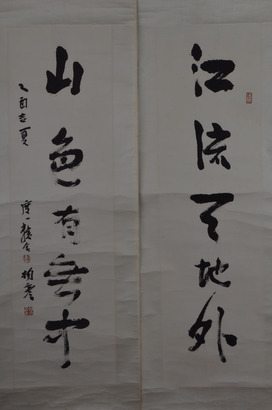 江流天地外
山色有無中
乙酉立夏